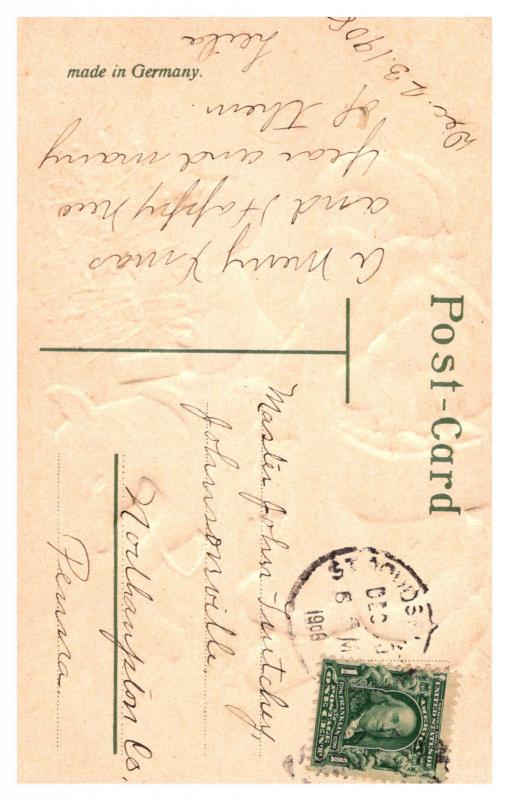 made in Germany.
Dec. 23, 1908
A Merry Xmas
and Happy New
Year and many
of them.
Leila
Post-Card
Master John
Johnsonville.
Northampton Co.
Penna.
DEC
1908
1
1